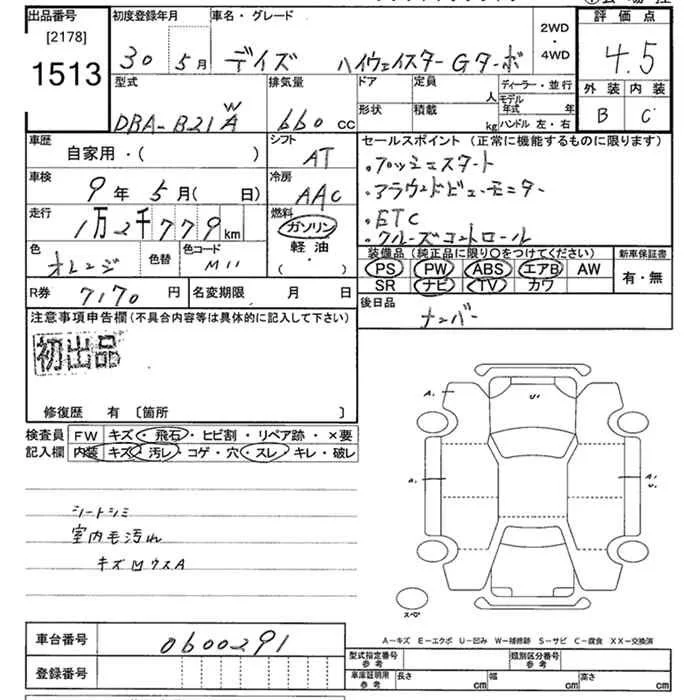 出品番号 初度登録年月 車名・グレード 評価点
[2178] 1513
30 5月 デイズ ハイウェイスターGターボ 2WD ・ 4WD 4.5
外装 内装
B C
型式 排気量 ドア 定員 人 ディーラー・並行
形状 積載 kg モデル年式 年
ハンドル 左・右
DBA-B21WA 660 CC
車歴 シフト セールスポイント(正常に機能するものに限ります)
自家用・( ) AT
・プッシュスタート
車検 9年 5月( 日) 冷房 AAC
・アラウンドビューモニター
走行 1万2千779km 燃料 ガソリン
・ETC
軽油
・クルーズコントロール
・( )
色 オレンジ 色替 色コード M11
装備品(純正品に限り○をつけてください) 新車保証書
PS PW ABS エアB AW 有・無
SR ナビ TV カワ
R券 7170円 名変期限 月 日
後日品 ナンバー
注意事項申告欄(不具合内容等は具体的に記入して下さい)
初出品
修復歴 有 〔箇所 〕
検査員 FW キズ・飛石・ヒビ割・リペア跡・×要
記入欄 内装 キズ・汚レ・コゲ・穴・スレ・キレ・破レ
シートシミ
室内毛汚れ
A1 U1
A1 A1 U1
スペア
A-キズ E-エクボ U-凹み W-補修跡 S-サビ C-腐食 XX-交換済
車台番号 0600291
登録番号
型式指定番号 参考 類別区分番号 参考
車庫証明用 参考 長さ cm 幅 cm 高さ cm